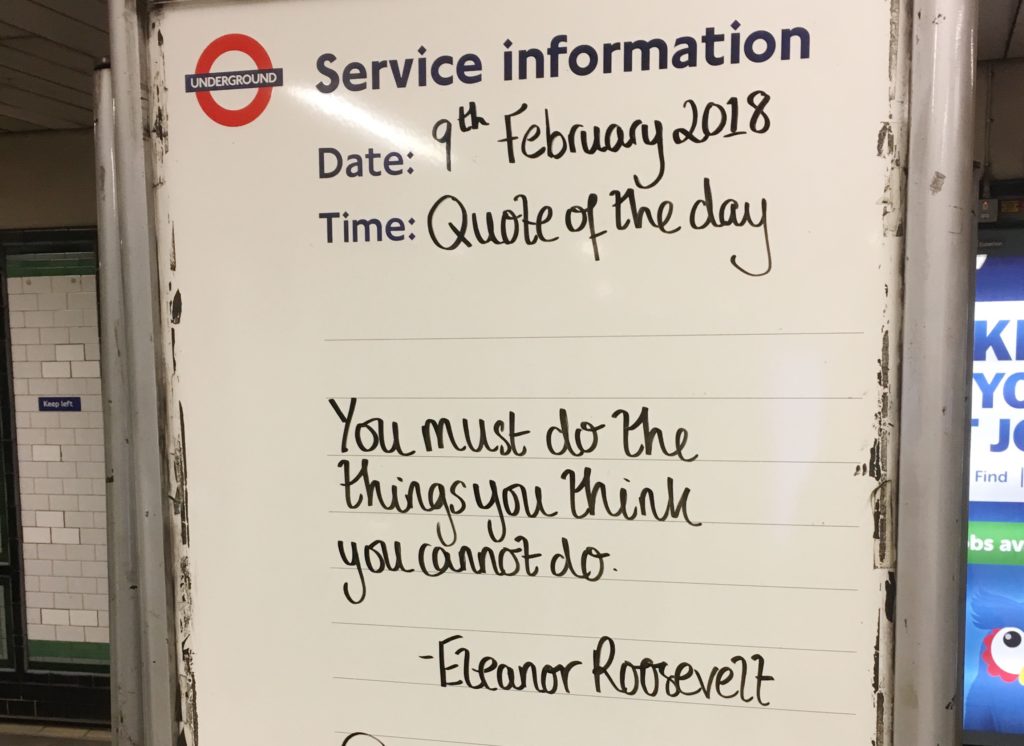 UNDERGROUND
Service information
Date: 9th February 2018
Time: Quote of the day
You must do the
things you think
you cannot do.
-Eleanor Roosevelt
Keep left
YO
JO
Find |
bs av